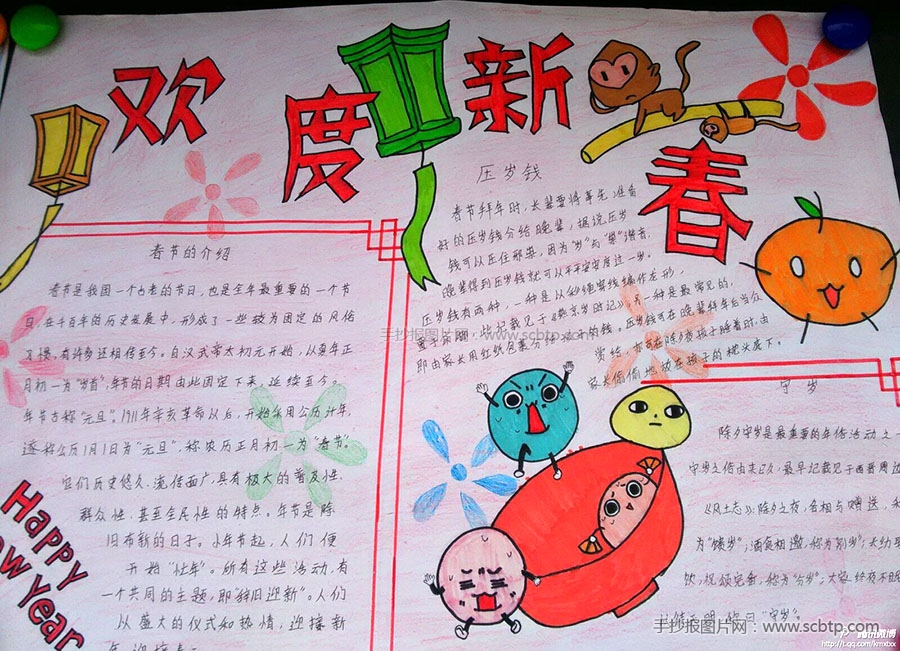 欢度新春
压岁钱
春节拜年时,长辈要将事先准备
好的压岁钱分给晚辈,据说压岁
钱可以压住邪祟,因为"岁"与"祟"谐音,
晚辈得到压岁钱就可以平平安安度过一岁。
压岁钱有两种,一种是以彩绳穿线编作龙形,
置于床脚,此记载见于《燕京岁时记》;另一种是最常见的,
即由家长用红纸包裹分给孩子的钱。压岁钱可在晚辈拜年后当众
赏给,亦可在除夕夜孩子睡着时,由
家长偷偷地放在孩子的枕头底下。
春节的介绍
春节是我国一个古老的节日,也是全年最重要的一个节
日,在千百年的历史发展中,形成了一些较为固定的风俗
习惯,有许多还相传至今。自汉武帝太初元年开始,以夏年正
月初一为"岁首",年节的日期由此固定下来,延续至今。
年节古称"元旦"。1911年辛亥革命以后,开始采用公历计年,
遂称公历1月1日为"元旦",称农历正月初一为"春节"。
它们历史悠久、流传面广,具有极大的普及性、
群众性、甚至全民性的特点。年节是除
旧布新的日子。小年节起,人们便
开始"忙年"。所有这些活动,有
一个共同的主题,即"辞旧迎新"。人们
以盛大的仪式和热情,迎接新
Happy
New Year
守岁
除夕守岁是最重要的年俗活动之一
守岁之俗由来已久,最早记载见于西晋周
《风土志》:除夕之夜,各相与赠送,
为"馈岁";酒食相邀,称为"别岁";长幼聚
饮,祝颂完备,称为"分岁";大家终夜不眠
曰"守岁"。
手抄报图片网:www.scbtp.com
手抄报图片网:www.scbtp.com
腾讯微博
http://t.qq.com/kmxbxx